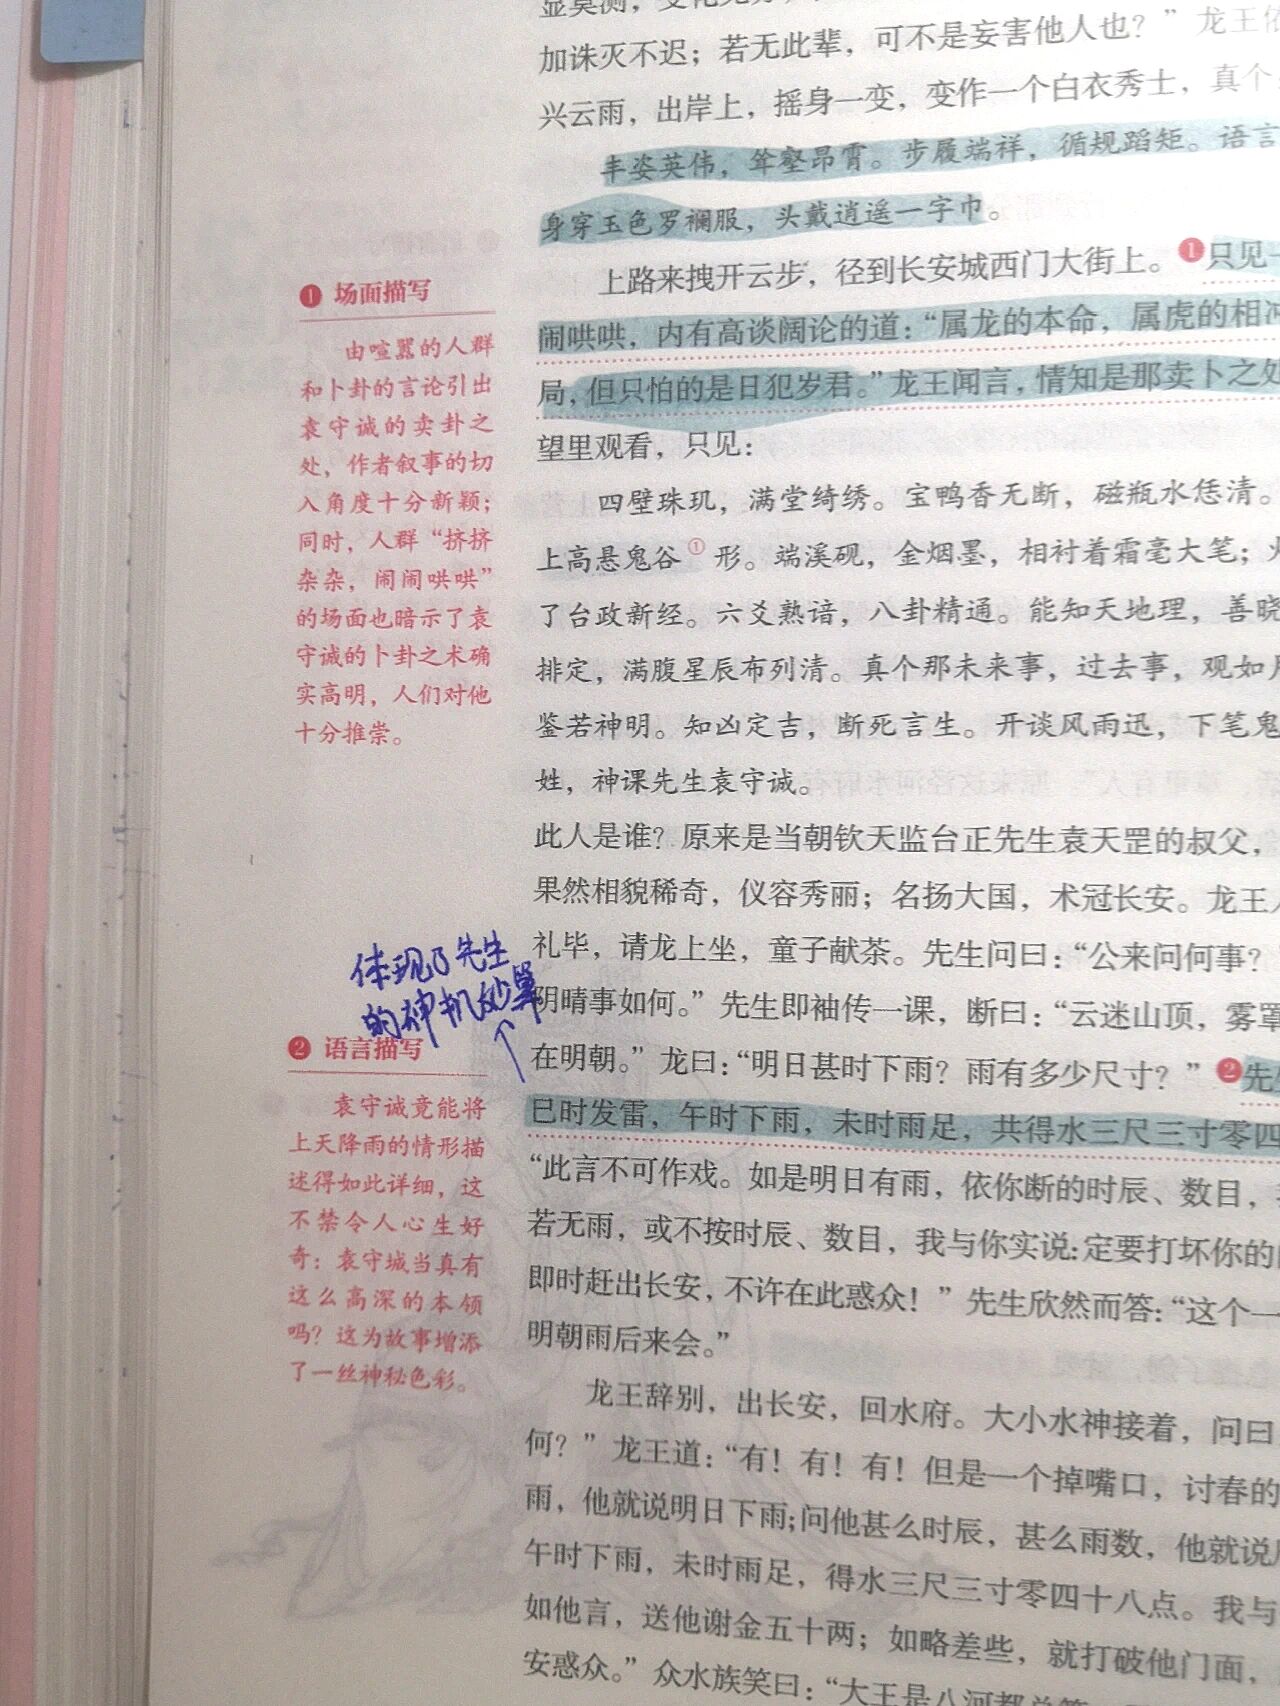 显莫测，变化无
加诛灭不迟；若无此辈，可不是妄害他人也？”龙王依
兴云雨，出岸上，摇身一变，变作一个白衣秀士，真个
丰姿英伟，耸壑昂霄。步履端祥，循规蹈矩。语言
身穿玉色罗襕服，头戴逍遥一字巾。
上路来拽开云步，径到长安城西门大街上。❶只见一
闹哄哄，内有高谈阔论的道：“属龙的本命，属虎的相冲
局，但只怕的是日犯岁君。”龙王闻言，情知是那卖卜之处
望里观看，只见：
四壁珠玑，满堂绮绣。宝鸭香无断，磁瓶水恁清。
上高悬鬼谷①形。端溪砚，金烟墨，相衬着霜毫大笔；火
了台政新经。六爻熟谙，八卦精通。能知天地理，善晓
排定，满腹星辰布列清。真个那未来事，过去事，观如月
鉴若神明。知凶定吉，断死言生。开谈风雨迅，下笔鬼
姓，神课先生袁守诚。
此人是谁？原来是当朝钦天监台正先生袁天罡的叔父，
果然相貌稀奇，仪容秀丽；名扬大国，术冠长安。龙王入
礼毕，请龙上坐，童子献茶。先生问曰：“公来问何事？
阴晴事如何。”先生即袖传一课，断曰：“云迷山顶，雾罩
在明朝。”龙曰：“明日甚时下雨？雨有多少尺寸？”❷先生
巳时发雷，午时下雨，未时雨足，共得水三尺三寸零四
“此言不可作戏。如是明日有雨，依你断的时辰、数目，
若无雨，或不按时辰、数目，我与你实说：定要打坏你的
即时赶出长安，不许在此惑众！”先生欣然而答：“这个一
明朝雨后来会。”
龙王辞别，出长安，回水府。大小水神接着，问曰
何？”龙王道：“有！有！有！但是一个掉嘴口，讨春的
雨，他就说明日下雨；问他甚么时辰，甚么雨数，他就说
午时下雨，未时雨足，得水三尺三寸零四十八点。我与
如他言，送他谢金五十两；如略差些，就打破他门面，
安惑众。”众水族笑曰：“大王是八河都总管
❶ 场面描写
由喧嚣的人群
和卜卦的言论引出
袁守诚的卖卦之
处，作者叙事的切
入角度十分新颖；
同时，人群“挤挤
杂杂，闹闹哄哄”
的场面也暗示了袁
守诚的卜卦之术确
实高明，人们对他
十分推崇。
体现了先生
的神机妙算
❷ 语言描写
袁守诚竟能将
上天降雨的情形描
述得如此详细，这
不禁令人心生好
奇：袁守城当真有
这么高深的本领
吗？这为故事增添
了一丝神秘色彩。